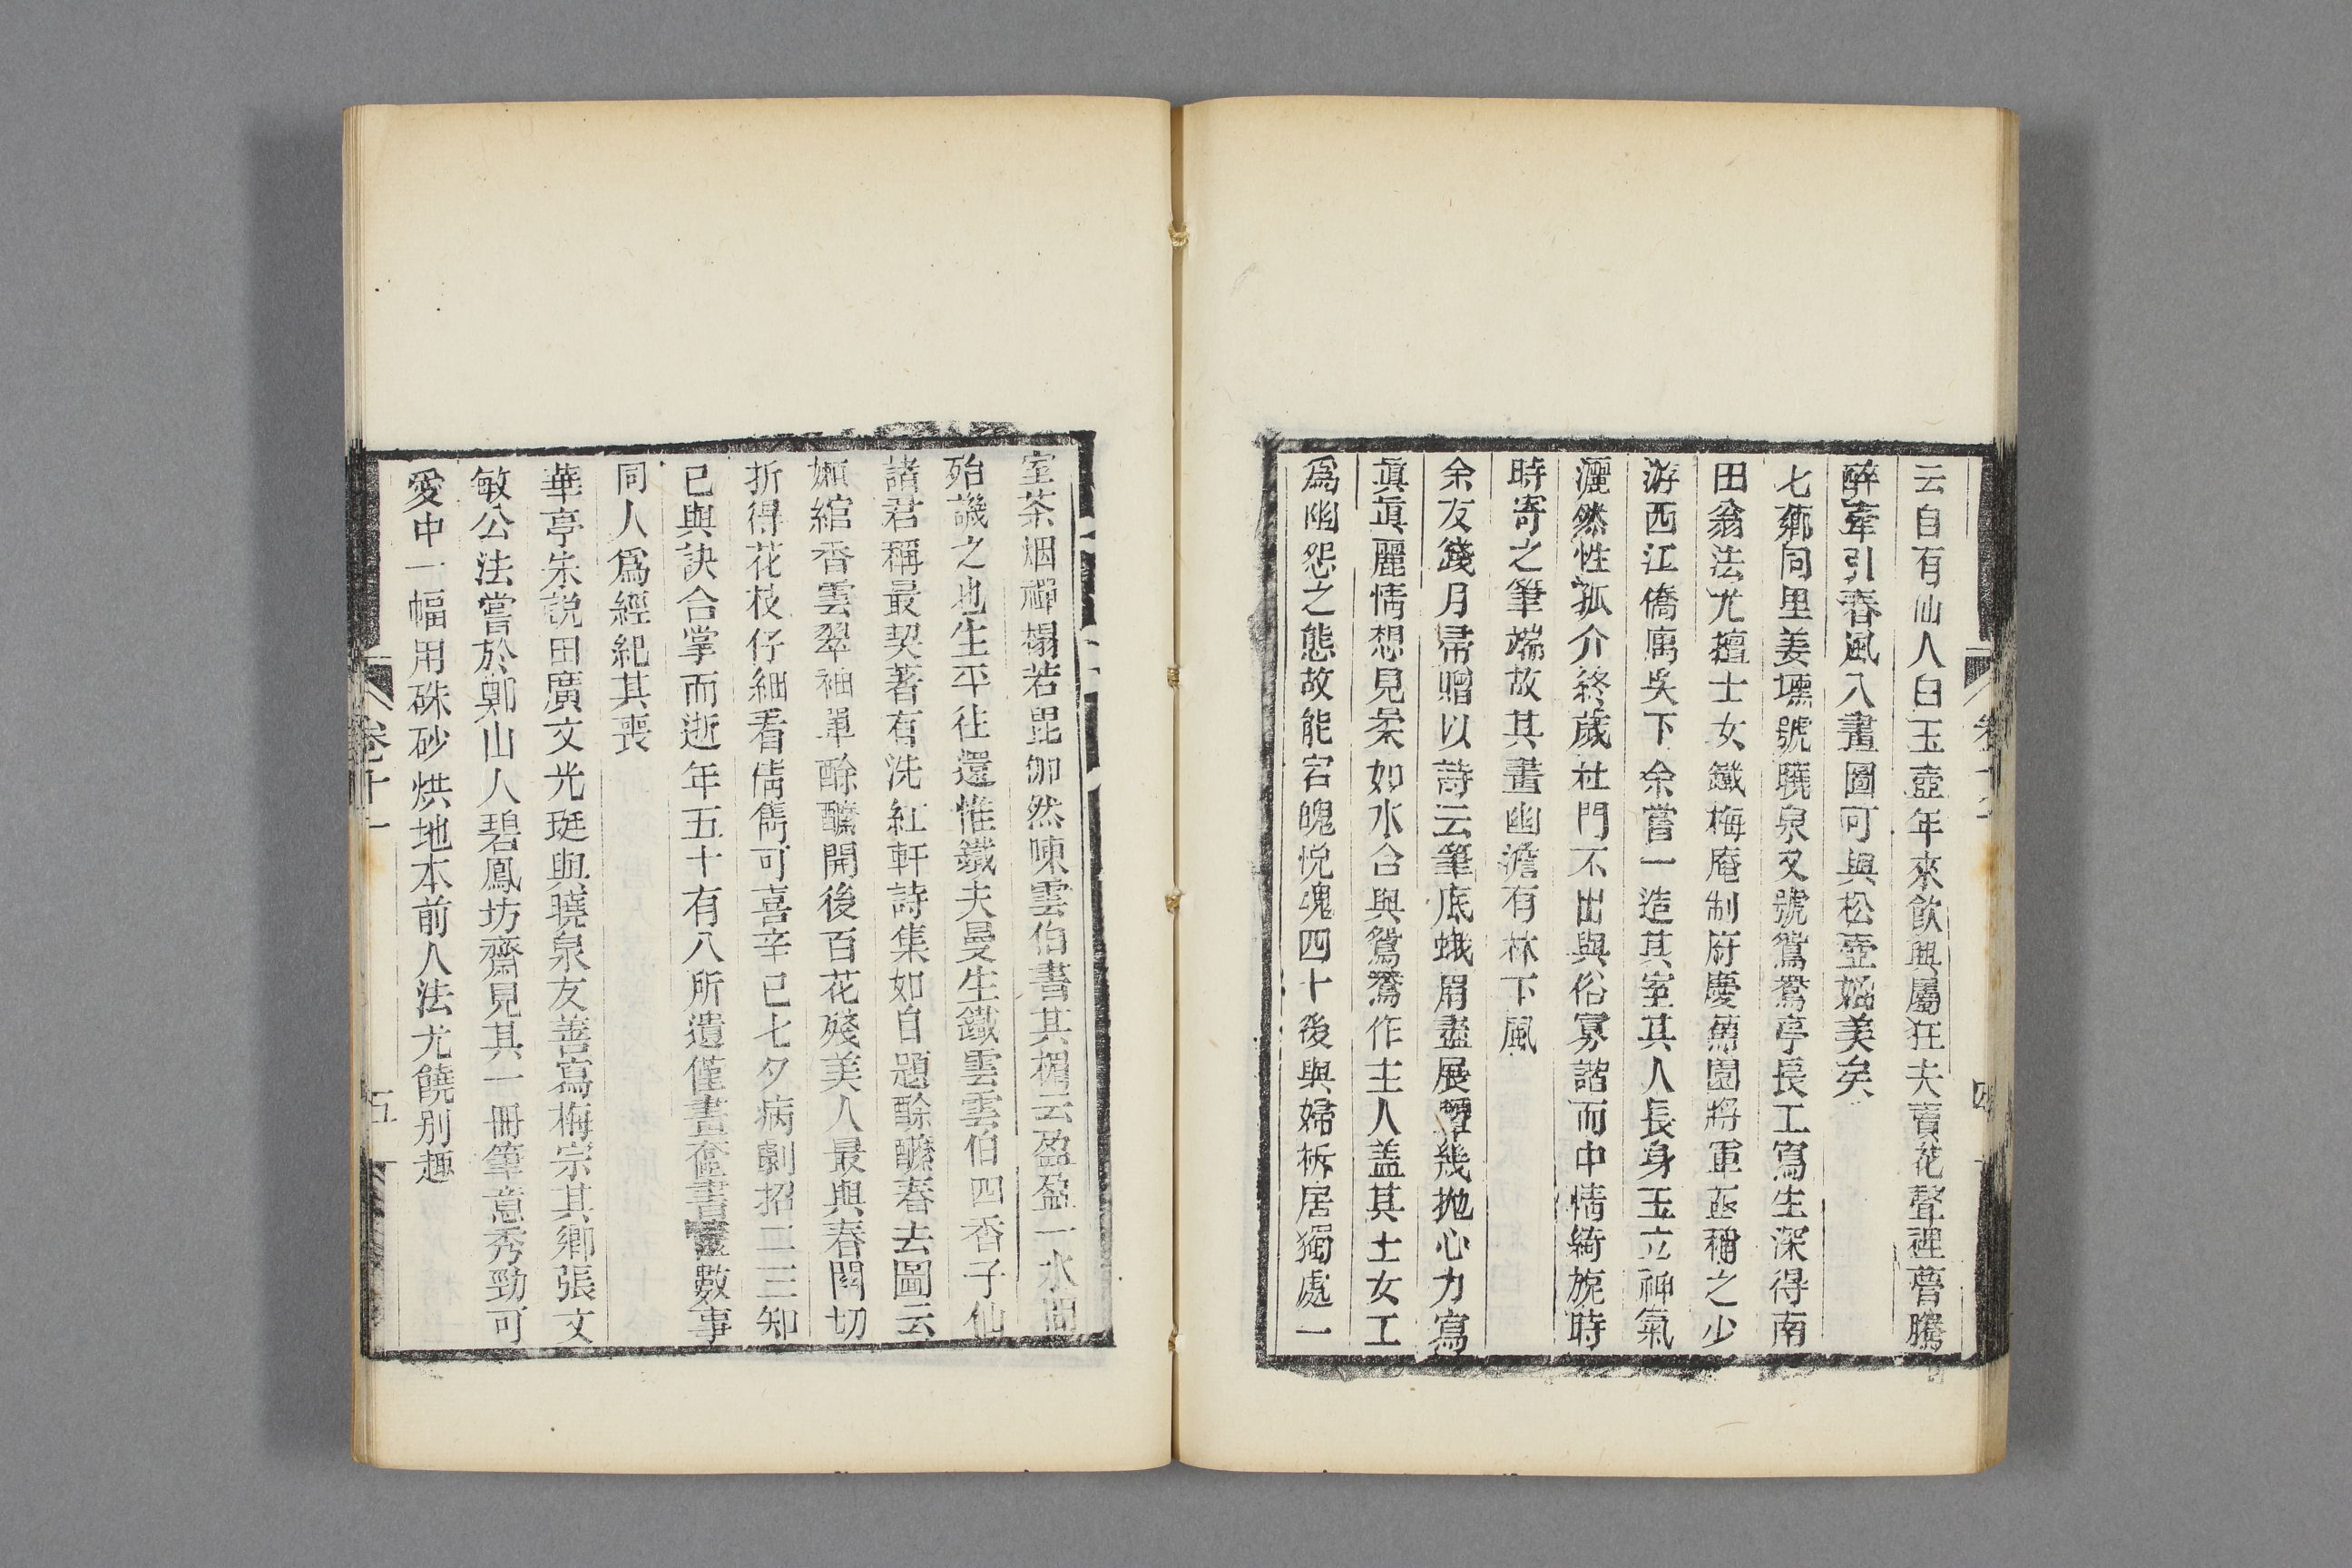 云自有仙人白玉壺年來飲興屬狂夫賣花聲裡瞢騰
醉牽引春風入畫圖可與松壺媲美矣
七薌同里姜壎號曉泉又號鴛鴦亭長工寫生深得南
田翁法尤擅士女鐵梅庵制府慶蕉園將軍亟稱之少
游西江僑寓吳下余嘗一造其室其人長身玉立神氣
灑然性孤介終歲杜門不出與俗寡諧而中情綺旎時
時寄之筆端故其畫幽澹有林下風
余友錢月帚贈以詩云筆底蛾眉盡展顰幾拋心力寫
眞眞麗情想見柔如水合與鴛鴦作主人蓋其士女工
爲幽怨之態故能宕魄悅魂四十後與婦析居獨處一
卷十一
四
室茶烟禪榻若毘邱然陳雲伯書其楣云盈盈一水間
殆譏之也生平往還惟鐵夫曼生鐵雲雲伯四香子仙
諸君稱最契著有洗紅軒詩集如自題酴醾春去圖云
嬾綰香雲翠袖單酴醾開後百花殘美人最與春關切
折得花枝仔細看倩雋可喜辛巳七夕病劇招二三知
已與訣合掌而逝年五十有八所遺僅畫奩書簏數事
同人爲經紀其喪
華亭朱說田廣文光珽與曉泉友善寫梅宗其鄉張文
敏公法嘗於鄭山人碧鳳坊齋見其一冊筆意秀勁可
愛中一幅用硃砂烘地本前人法尤饒別趣
卷十一
五